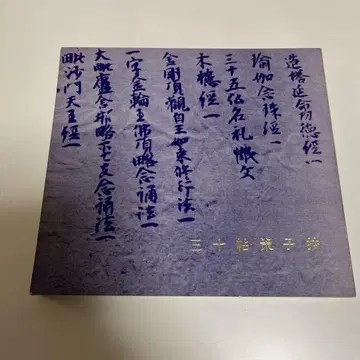 造塔延命功德經一
瑜伽念珠經一
三十五佛名礼懺文
木槵經一
金剛頂觀自王如来修行法一
一字金輪王佛頂略念誦法一
大毗盧舍那略要支念誦法一
毗沙門天王經一
三十帖策子